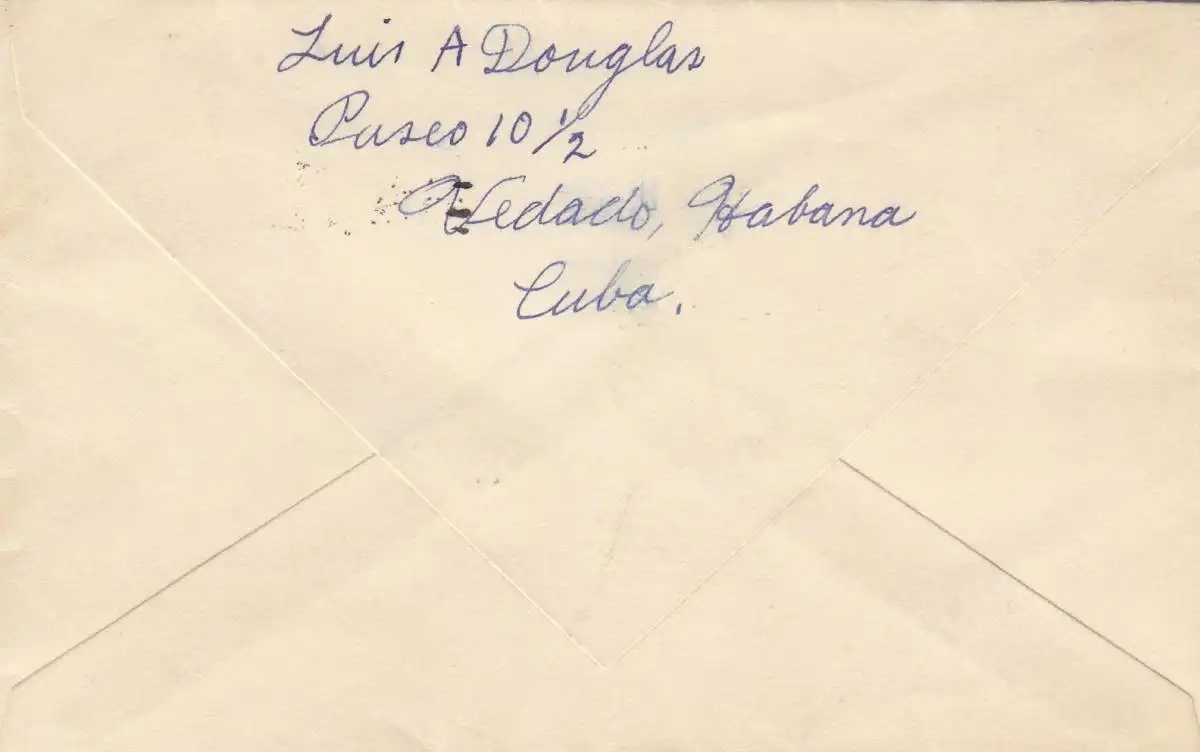 Luis A Douglas
Paseo 10 1/2
Vedado, Habana
Cuba.